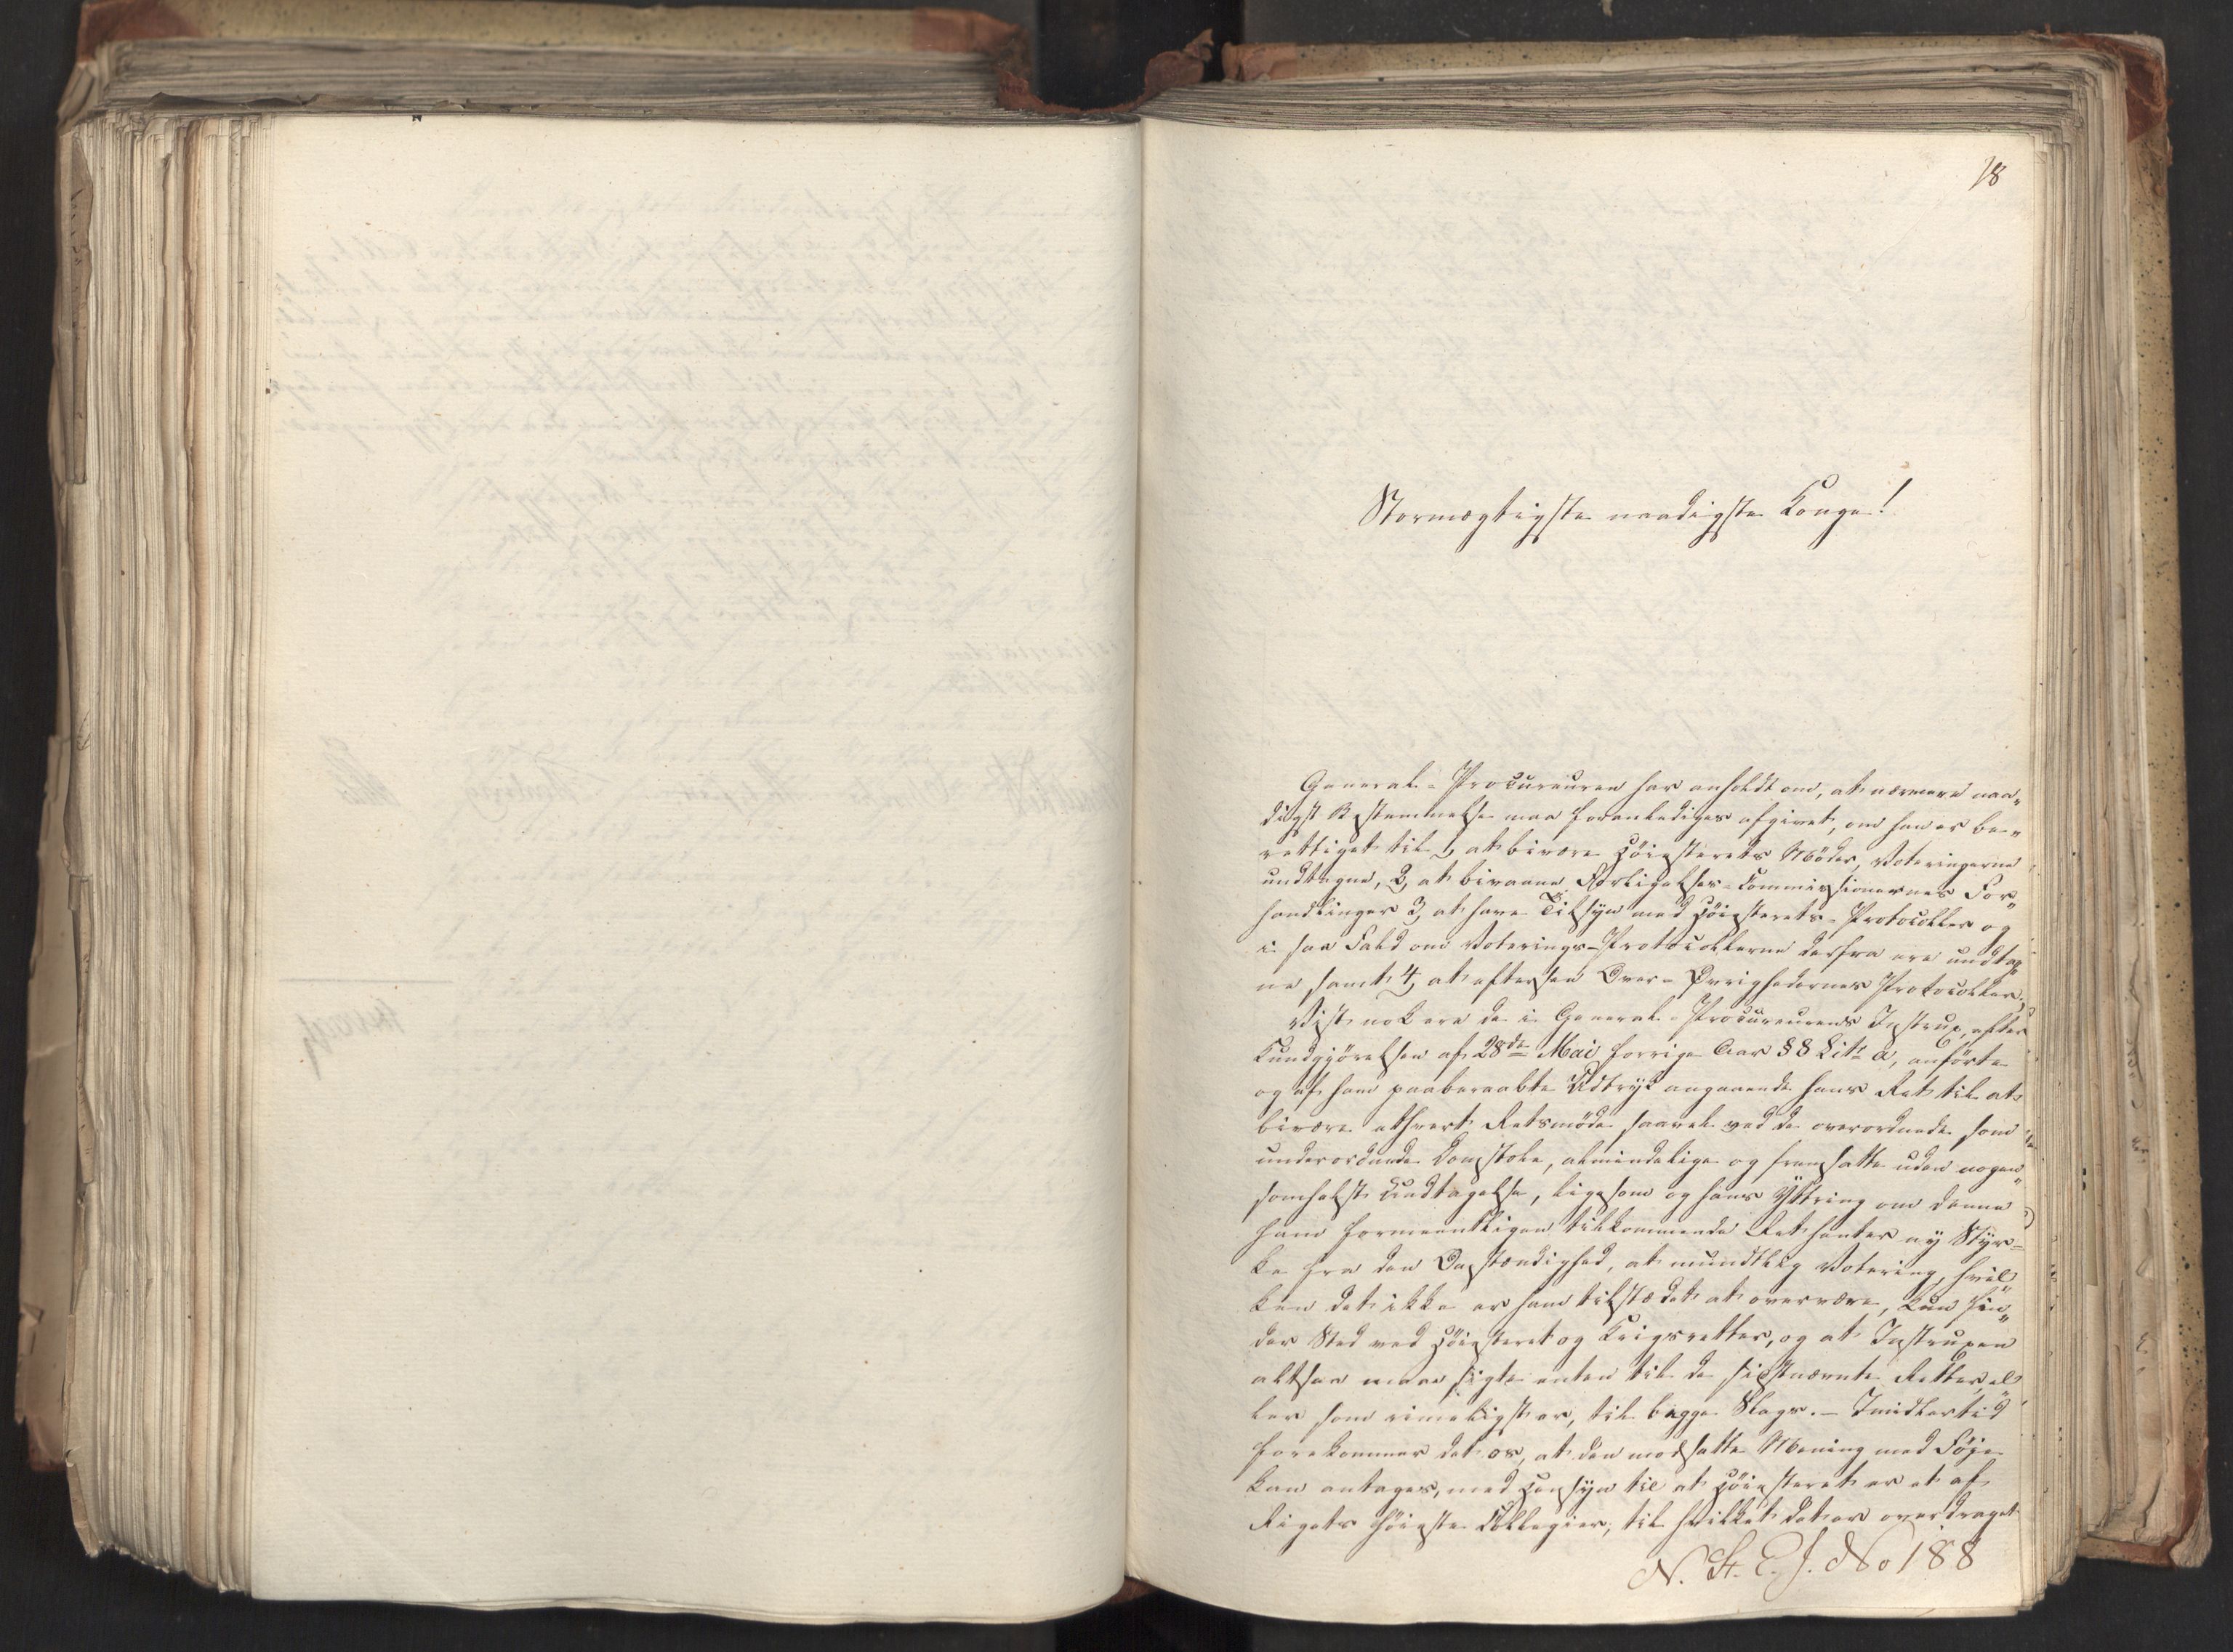 18
Stormægtigste naadigste Konge!
General-Procureuren har anholdt om, at nærmere naa„
digst Bestemmelse maa foranlediges afgivet, om han er be„
rettiget til 1, at bivære Höiesterets Möder, Voteringerne
undtagne, 2, at bivaane Forligelses-Commissionernes For„
handlinger 3, at have Tilsyn med Höiesterets-Protocoller og
i saa Fald om Voterings-Protocollerne derfra ere undtag„
ne, samt 4, at eftersee Over-Övrighedernes Protocoller.
Vist nok ere de i General-Procureurens Instrux, efter
Kundgjörelsen af 28de Mai forrige Aar § 8 Litr a, anförte
og af ham paaberaabte Udtryk angaaende hans Ret til at
bivære ethvert Retsmöde, saavel ved de overordnede som
underordnede Domstole, almindelige og fremsatte uden nogen„
somhelst Undtagelse, ligesom og hans Yttring om denne
ham formeentligen tilkommende Ret henter ny Styr=
ke fra den Omstændighed, at mundtlig Votering, hvil„
ken det ikke er ham tilstædet at overvære, kun fin„
der Sted ved Höiesteret og Krigsretter, og at Instruxen
altsaa maa sigte enten til de sidstnævnte Retter, el„
ler som rimeligst er, til begge Slags. – Imidlertid
forekommer det os, at den modsatte Mening med Föje
kan antages, med Hensyn til at Höiesteret er et af
Rigets höieste Collegier, til hvilket det er overdraget
N. St. E. J. No 188